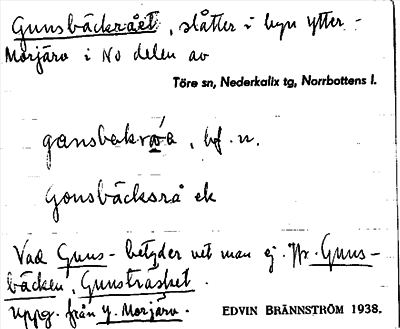 Gunsbäckrået, slåtter i byn Ytter-
Morjärv i NO delen av
Töre sn, Nederkalix tg, Norrbottens l.
gansbakråa, bf. n.
Gonsbäcksrå ek
Vad Guns- betyder vet man ej. Jfr. Guns-
bäcken, Gunsträsket.
Uppg. från Y. Morjärv.
EDVIN BRÄNNSTRÖM 1938.